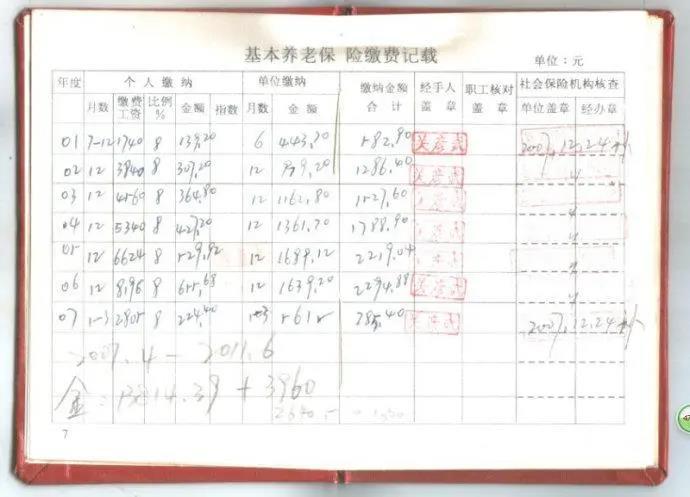 基本养老保 险缴费记载
单位：元
年度 个人缴纳 单位缴纳 缴纳金额合计 经手人盖章 职工核对盖章 社会保险机构核查
月数 缴费工资 比例% 金额 指数 月数 金额 单位盖章 经办章
01 7-12 1740 8 139.20 6 443.70 582.90 2007.12.24补
02 12 3840 8 307.20 12 979.20 1286.40 〃
03 12 4560 8 364.80 12 1162.80 1527.60 〃
04 12 5340 8 427.20 12 1361.70 1788.90 〃
05 12 6624 8 529.92 12 1689.12 2219.04 〃
06 12 8196 8 655.68 12 1639.20 2294.88 〃
07 1-3 2805 8 224.40 1-3 561 785.40 2007.12.24补
2007.4 - 2011.6
金: 13814.39 + 3960
7